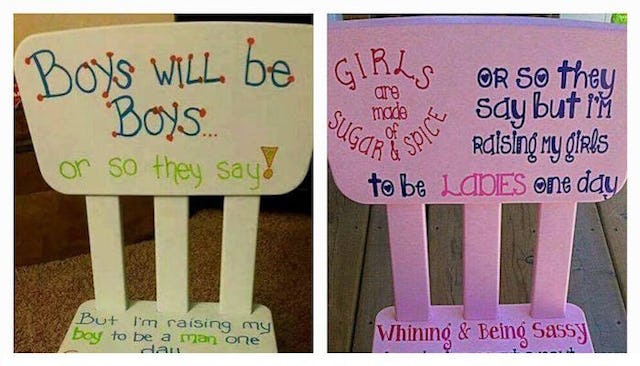 Boys will be
Boys...
or so they say!
But I'm raising my
boy to be a man one
day
GIRLS
are
made
of
SUGAR & SPICE
OR SO they
say but I'M
Raising My girls
to be LADIES one day
Whining & Being Sassy